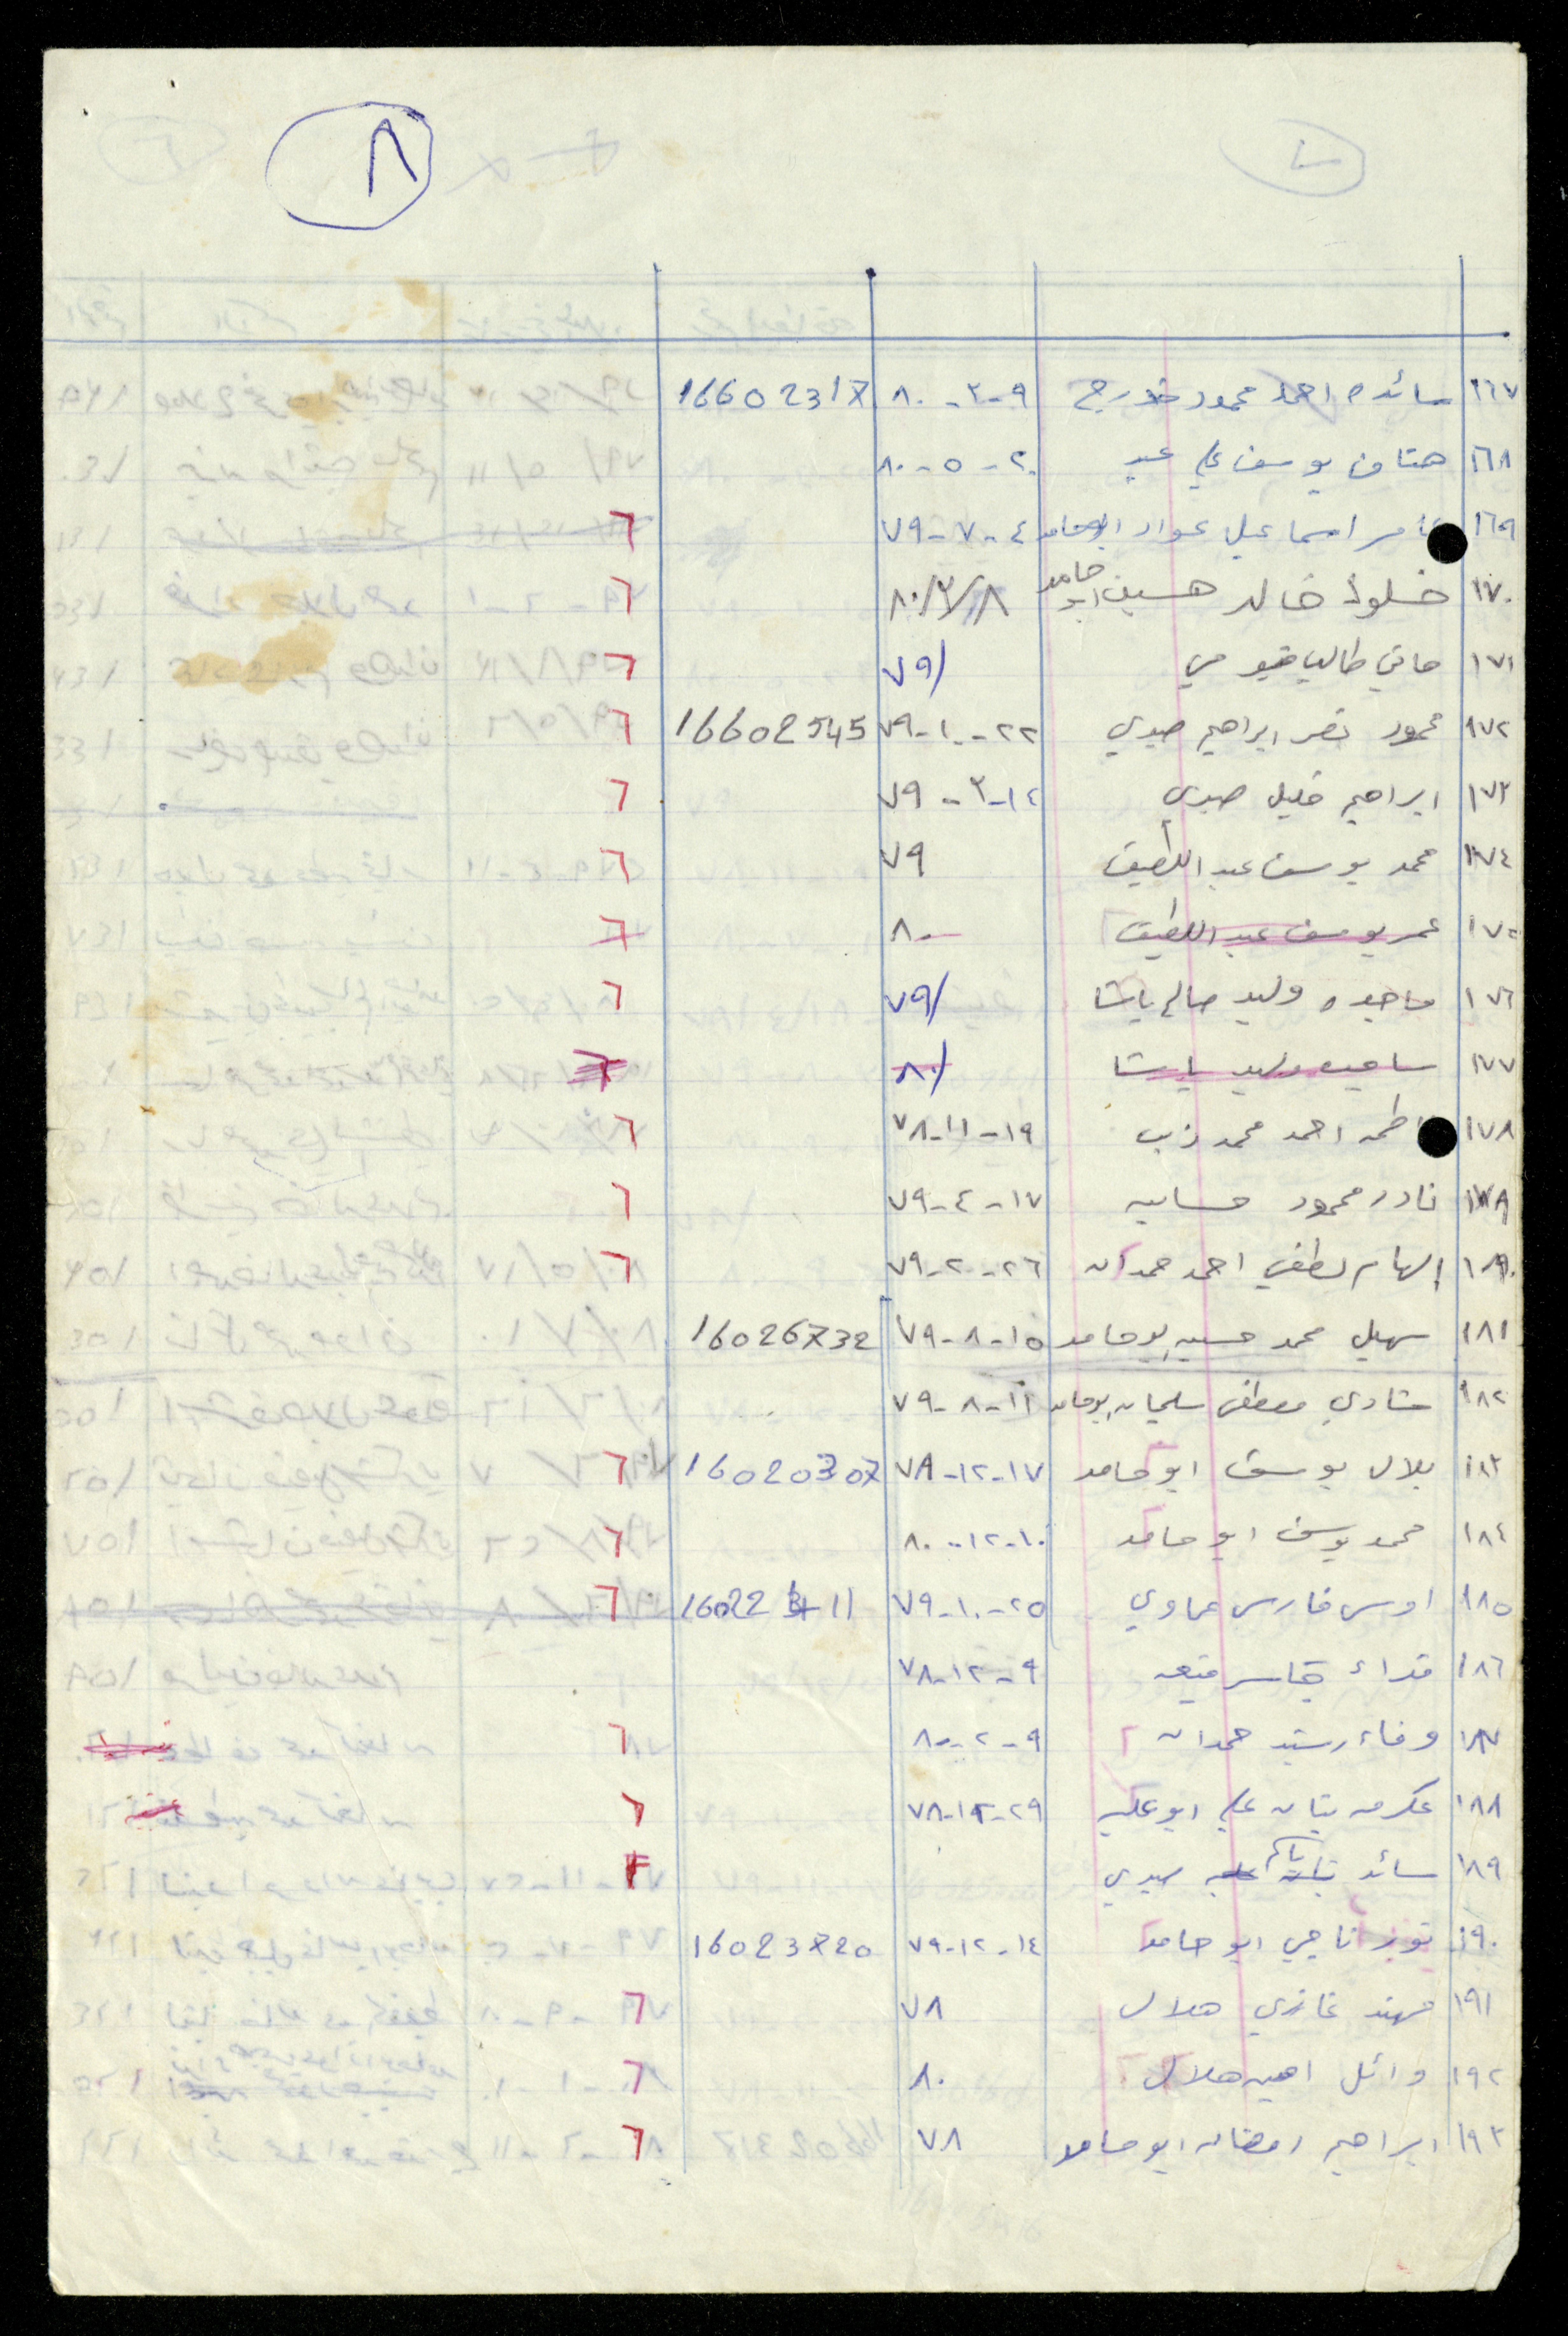 ٨
١٦٧ سائده احمد محمود خارج ٩-٣-٨٠ 16602317
١٦٨ هتاف يوسف علي عيد ٢٠-٥-٨٠
١٦٩ اسماعيل عواد ابو حامد ٤-٧-٧٩ ٦
١٧٠ خلود خالد حسين ابو حامد ٨٠/٣/٨ ٦
١٧١ هاني طالب فيومي ٧٩/ ٦
١٧٢ محمود نصر ابراهيم صبري ٢٢-١٠-٧٩ 16602545 ٦
١٧٣ ابراهيم خليل صبري ١٤-٣-٧٩ ٦
١٧٤ محمد يوسف عبد اللطيف ٧٩ ٦
١٧٥ عمر يوسف عبد اللطيف ٨٠ ٦
١٧٦ ماجده وليد صالح باشا ٧٩/ ٦
١٧٧ وليد باشا ٨٠/ ٦
١٧٨ احمد محمد ١٩-١١-٧٨ ٦
١٧٩ نادر محمود ١٧-٤-٧٩ ٦
١٨٠ إلهام لطفي احمد حمدان ٢٦-٢-٧٩ ٦
١٨١ سهيل محمد حسين ابو حامد ١٥-٨-٧٩ 16026732
١٨٢ شادي مصطفى سليمان ابو حامد ١١-٨-٧٩
١٨٣ بلال يوسف ابو حامد ١٧-١٢-٧٨ 16020307 ٦
١٨٤ محمد يوسف ابو حامد ١٠-١٢-٨٠ ٦
١٨٥ اوس فارس عماوي ٢٥-١٠-٧٩ 16022 11 ٦
١٨٦ فداء ٩-١٢-٧٨
١٨٧ وفاء رشيد حمدان ٩-٢-٨٠ ٦
١٨٨ عكرمه علي ابو ٢٩-١٢-٧٨ ٦
١٨٩ سائد صبري
١٩٠ فوز ناجي ابو حامد ١٤-١٢-٧٩ 16023720
١٩١ مهند غازي هلال ٧٨ ٦
١٩٢ وائل امين هلال ٨٠ ٦
١٩٣ ابراهيم رمضان ابو حامد ٧٨ ٦